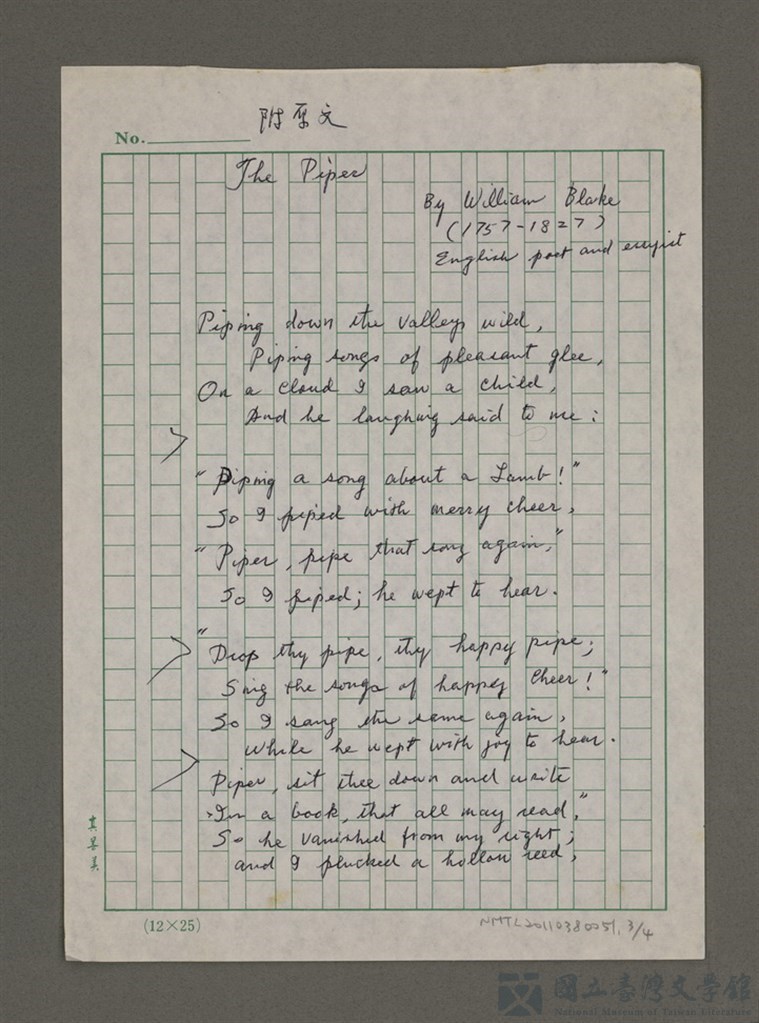 附原文
No.
The Piper
By William Blake
(1757-1827)
English poet and essayist
Piping down the valleys wild,
Piping songs of pleasant glee,
On a cloud I saw a child,
And he laughing said to me:
"Piping a song about a Lamb!"
So I piped with merry cheer,
"Piper, pipe that song again,"
So I piped; he wept to hear.
"Drop thy pipe, thy happy pipe;
Sing the songs of happy cheer!"
So I sang the same again,
While he wept with joy to hear.
Piper, sit thee down and write
In a book, that all may read,"
So he vanished from my sight;
and I plucked a hollow reed,
真善美
(12×25)
NMTL20110380051, 3/4
國立臺灣文學館
National Museum of Taiwan Literature